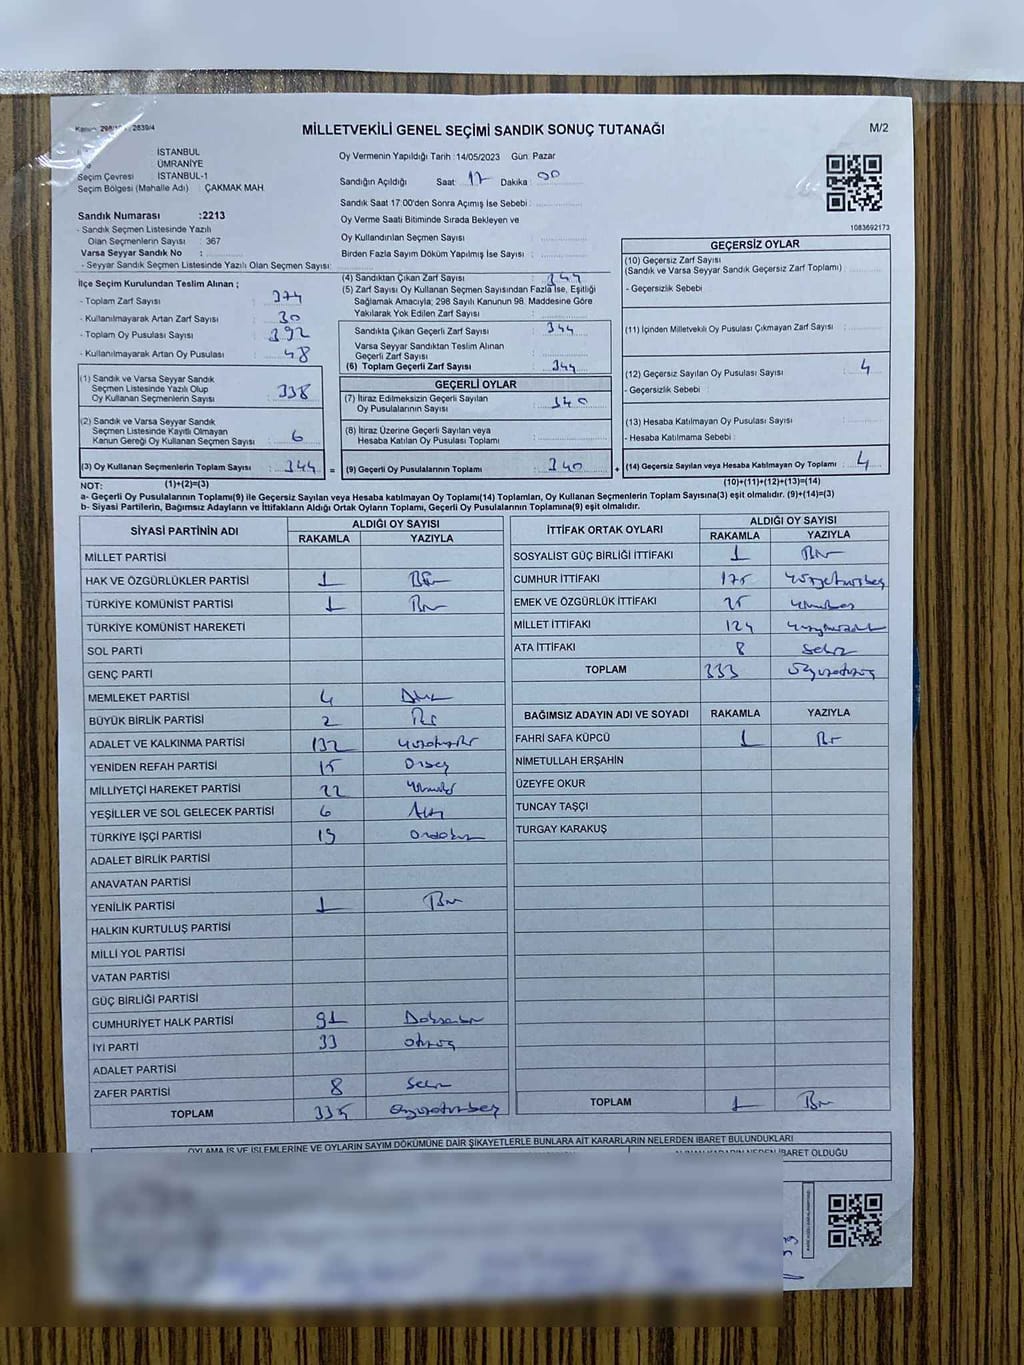 MİLLETVEKİLİ GENEL SEÇİMİ SANDIK SONUÇ TUTANAĞI
M/2
2839/4
İSTANBUL
ÜMRANİYE
Seçim Çevresi İSTANBUL-1
Seçim Bölgesi (Mahalle Adı) : ÇAKMAK MAH
Oy Vermenin Yapıldığı Tarih :14/05/2023 Gün: Pazar
Sandığın Açıldığı Saat: 17 Dakika : 00
Sandık Saat 17:00'den Sonra Açımış İse Sebebi :
Oy Verme Saati Bitiminde Sırada Bekleyen ve
Oy Kullandırılan Seçmen Sayısı :
Birden Fazla Sayım Döküm Yapılmış İse Sayısı :
Sandık Numarası :2213
- Sandık Seçmen Listesinde Yazılı
Olan Seçmenlerin Sayısı : 367
Varsa Seyyar Sandık No :
- Seyyar Sandık Seçmen Listesinde Yazılı Olan Seçmen Sayısı:
İlçe Seçim Kurulundan Teslim Alınan ;
- Toplam Zarf Sayısı : 374
- Kullanılmayarak Artan Zarf Sayısı : 30
- Toplam Oy Pusulası Sayısı : 392
- Kullanılmayarak Artan Oy Pusulası : 48
(1) Sandık ve Varsa Seyyar Sandık
Seçmen Listesinde Yazılı Olup
Oy Kullanan Seçmenlerin Sayısı : 338
(2) Sandık ve Varsa Seyyar Sandık
Seçmen Listesinde Kayıtlı Olmayan
Kanun Gereği Oy Kullanan Seçmen Sayısı : 6
(3) Oy Kullanan Seçmenlerin Toplam Sayısı : 344 =
(4) Sandıktan Çıkan Zarf Sayısı : 344
(5) Zarf Sayısı Oy Kullanan Seçmen Sayısından Fazla İse, Eşitliği
Sağlamak Amacıyla; 298 Sayılı Kanunun 98. Maddesine Göre
Yakılarak Yok Edilen Zarf Sayısı :
Sandıkta Çıkan Geçerli Zarf Sayısı : 344
Varsa Seyyar Sandıktan Teslim Alınan
Geçerli Zarf Sayısı :
(6) Toplam Geçerli Zarf Sayısı : 344
GEÇERLİ OYLAR
(7) İtiraz Edilmeksizin Geçerli Sayılan
Oy Pusulalarının Sayısı : 340
(8) İtiraz Üzerine Geçerli Sayılan veya
Hesaba Katılan Oy Pusulası Toplamı :
(9) Geçerli Oy Pusulalarının Toplamı : 340 +
1083692173
GEÇERSİZ OYLAR
(10) Geçersiz Zarf Sayısı
(Sandık ve Varsa Seyyar Sandık Geçersiz Zarf Toplamı) :
- Geçersizlik Sebebi :
(11) İçinden Milletvekili Oy Pusulası Çıkmayan Zarf Sayısı :
(12) Geçersiz Sayılan Oy Pusulası Sayısı : 4
- Geçersizlik Sebebi :
(13) Hesaba Katılmayan Oy Pusulası Sayısı :
- Hesaba Katılmama Sebebi :
(14) Geçersiz Sayılan veya Hesaba Katılmayan Oy Toplamı : 4
NOT: (1)+(2)=(3) (10)+(11)+(12)+(13)=(14)
a- Geçerli Oy Pusulalarının Toplamı(9) ile Geçersiz Sayılan veya Hesaba katılmayan Oy Toplamı(14) Toplamları, Oy Kullanan Seçmenlerin Toplam Sayısına(3) eşit olmalıdır. (9)+(14)=(3)
b- Siyasi Partilerin, Bağımsız Adayların ve İttifakların Aldığı Ortak Oyların Toplamı, Geçerli Oy Pusulalarının Toplamına(9) eşit olmalıdır.
SİYASİ PARTİNİN ADI ALDIĞI OY SAYISI
RAKAMLA YAZIYLA
MİLLET PARTİSİ
HAK VE ÖZGÜRLÜKLER PARTİSİ 1 Bir
TÜRKİYE KOMÜNİST PARTİSİ 1 Bir
TÜRKİYE KOMÜNİST HAREKETİ
SOL PARTİ
GENÇ PARTİ
MEMLEKET PARTİSİ 4
BÜYÜK BİRLİK PARTİSİ 2
ADALET VE KALKINMA PARTİSİ 132
YENİDEN REFAH PARTİSİ 15 Onbeş
MİLLİYETÇİ HAREKET PARTİSİ 22
YEŞİLLER VE SOL GELECEK PARTİSİ 6 Altı
TÜRKİYE İŞÇİ PARTİSİ 19 Ondokuz
ADALET BİRLİK PARTİSİ
ANAVATAN PARTİSİ
YENİLİK PARTİSİ 1 Bir
HALKIN KURTULUŞ PARTİSİ
MİLLİ YOL PARTİSİ
VATAN PARTİSİ
GÜÇ BİRLİĞİ PARTİSİ
CUMHURİYET HALK PARTİSİ 91 Doksanbir
İYİ PARTİ 33 otuzüç
ADALET PARTİSİ
ZAFER PARTİSİ 8 Sekiz
TOPLAM 335
İTTİFAK ORTAK OYLARI ALDIĞI OY SAYISI
RAKAMLA YAZIYLA
SOSYALİST GÜÇ BİRLİĞİ İTTİFAKI 1 Bir
CUMHUR İTTİFAKI 175
EMEK VE ÖZGÜRLÜK İTTİFAKI 25
MİLLET İTTİFAKI 124
ATA İTTİFAKI 8 Sekiz
TOPLAM 333
BAĞIMSIZ ADAYIN ADI VE SOYADI RAKAMLA YAZIYLA
FAHRİ SAFA KÜPCÜ 1 Bir
NİMETULLAH ERŞAHİN
ÜZEYFE OKUR
TUNCAY TAŞÇI
TURGAY KARAKUŞ
TOPLAM 1 Bir
OYLAMA İŞ VE İŞLEMLERİNE VE OYLARIN SAYIM DÖKÜMÜNE DAİR ŞİKAYETLERLE BUNLARA AİT KARARLARIN NELERDEN İBARET BULUNDUKLARI
İBARET OLDUĞU